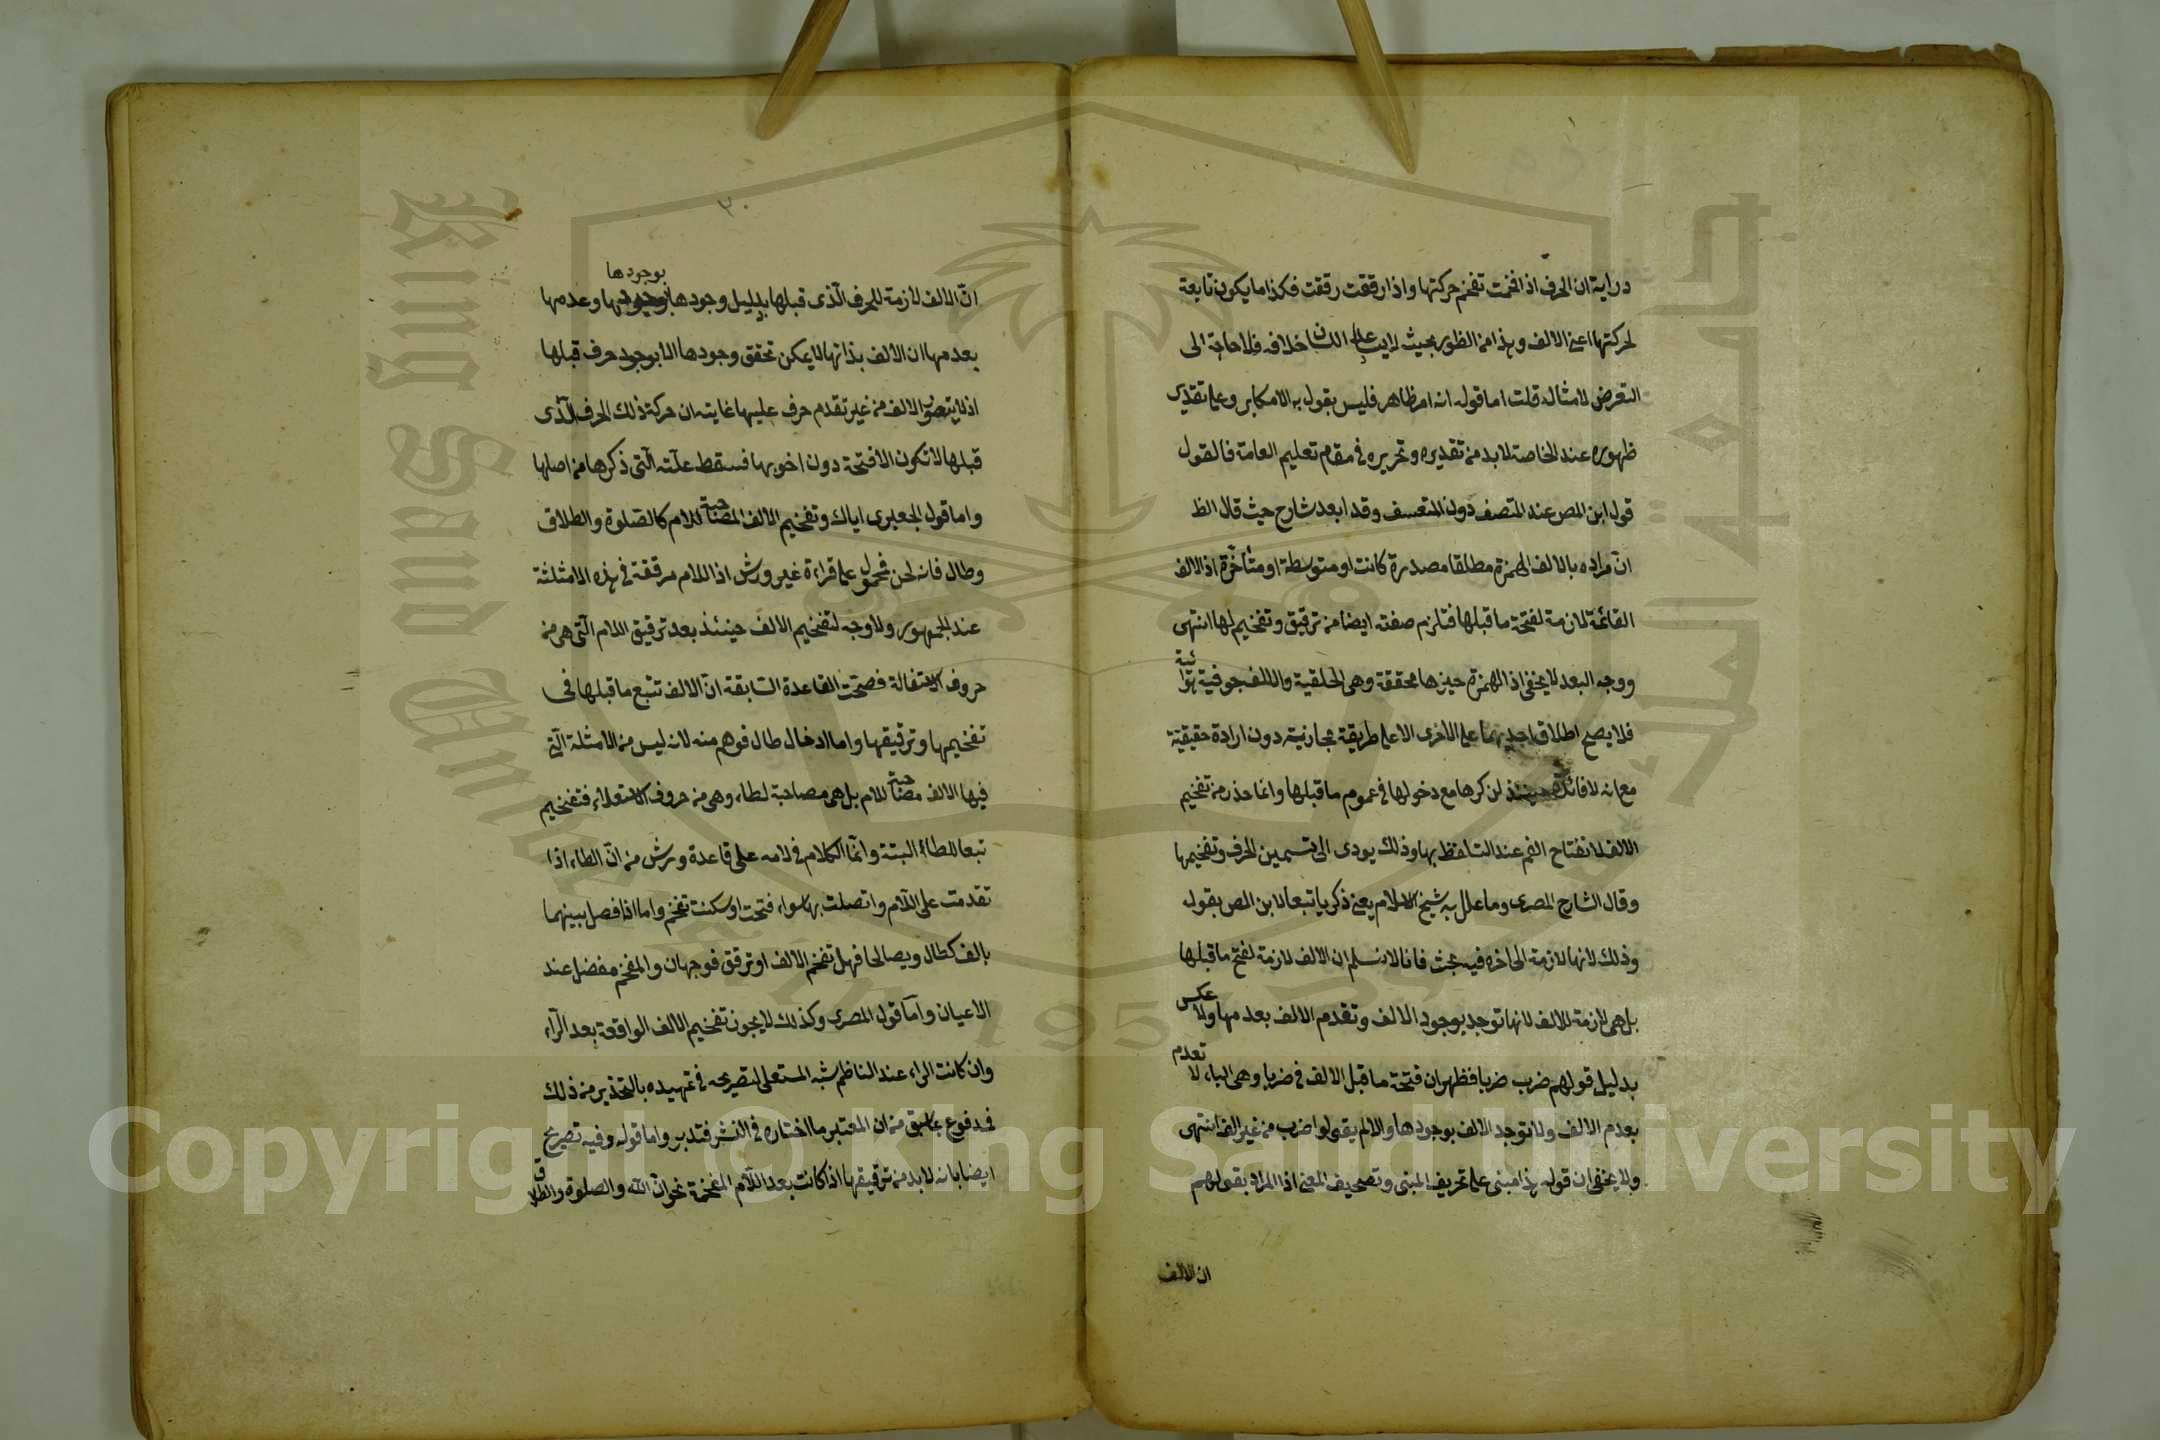 دراية ان الحرف اذا فخمت تفخم حركتها واذا رققت رققت فكذا ما يكون تابعة
لحركتها اعني الالف وهذا من الظهور بحيث خلافه فلا حاجة الى
التعرض لامثاله قلت اما قوله انه امر ظاهر فليس يقول به الا مكابر وعلى تقدير
ظهوره عند الخاصة لا بد من تقديره وتحريره في مقام تعليم العامة فالقول
قول ابن المص عند المتصف دون المتعسف وقد ابعد شارح حيث قال الظ
ان مراده بالالف الهمزة مطلقا مصدرة كانت او متوسطة او متأخرة اذ الالف
القائمة لازمة لفتحة ما قبلها فتلزم صفته ايضا من ترقيق وتفخيم لها انتهى
ووجه البعد لا يخفى اذ الهمزة حيزها محققة وهي الحلقية والالف جوفية هوائية
فلا يصح اطلاق احديهما على الاخرى الا على طريقة مجازية دون ارادة حقيقية
مع انه لا فائدة حينئذ لذكرها مع دخولها في عموم ما قبلها وانما حذر من تفخيم
الالف لانفتاح الفم عند التلفظ بها وذلك يودى الى تسمين الحرف وتفخيمها
وقال الشارح المصرى وما علل به شيخ الاسلام يعني ذكريا تبعا لابن المص بقوله
وذلك لانها لازمة الى اخره فيه بحث فانا لا نسلم ان الالف لازمة لفتح ما قبلها
بل هي لازمة للالف لانها توجد بوجود الالف وتقدم الالف بعدمها ولا عكس
بدليل قولهم ضرب ضربا فظهر ان فتحة ما قبل الالف في ضربا وهي الباء لا تعدم
بعدم الالف ولا توجد الالف بوجودها والا لم يقولوا ضرب من غير الف انتهى
ولا يخفى ان قوله هذا مبني على تحريف المبنى وتصحيف المعنى اذ المراد بقولهم
ان الالف
٣٠
ان الالف لازمة للحرف الذى قبلها بدليل وجودها بوجودها وعدمها
بعدمها ان الالف بذاتها لا يمكن تحقق وجودها الا بوجود حرف قبلها
اذ لا يتصور الالف من غير تقدم حرف عليها غايته ان حركة ذلك الحرف الذى
قبلها لا تكون الا فتحة دون اخويها فسقط علته التى ذكرها من اصلها
واما قول الجعبرى اياك وتفخيم الالف المصاحبة للام كالصلوة والطلاق
وطال فانه لحن فمحمول على قراءة غير ورش اذ اللام مرققة في هذه الامثلة
عند الجمهور ولا وجه لتفخيم الالف حينئذ بعد ترقيق اللام التى هي من
حروف الاستفالة فصحت القاعدة السابقة ان الالف تتبع ما قبلها فى
تفخيمها وترقيقها واما ادخال طال فوهم منه لانه ليس من الامثلة التي
فيها الالف مصاحبة للام بل هى مصاحبة لطاء وهي من حروف الاستعلاء فتفخيم
تبعا للطاء البتة وانما الكلام في لامه على قاعدة ورش من ان الطاء اذا
تقدمت على اللام واتصلت بها سواء فتحت او سكنت تفخم واما اذا فصل بينهما
بالف كطال ويصالحا فهل تفخم الالف او ترقق فوجهان والمفخم مفضل عند
الاعيان واما قول المصرى وكذلك لا يجوز تفخيم الالف الواقعة بعد الراء
وان كانت الراء عند الناظم شبه المستعلى لتصريحه في تمهيده بالتحذير من ذلك
فمدفوع بما سبق من ان المعتبر ما اختاره في النشر فتدبر واما قوله وفيه تصريح
ايضا بانه لا بد من ترقيقها اذا كانت بعد اللام المفخمة نحو ان الله والصلوة والطلاق
Copyright © King Saud University
King Saud University 1957